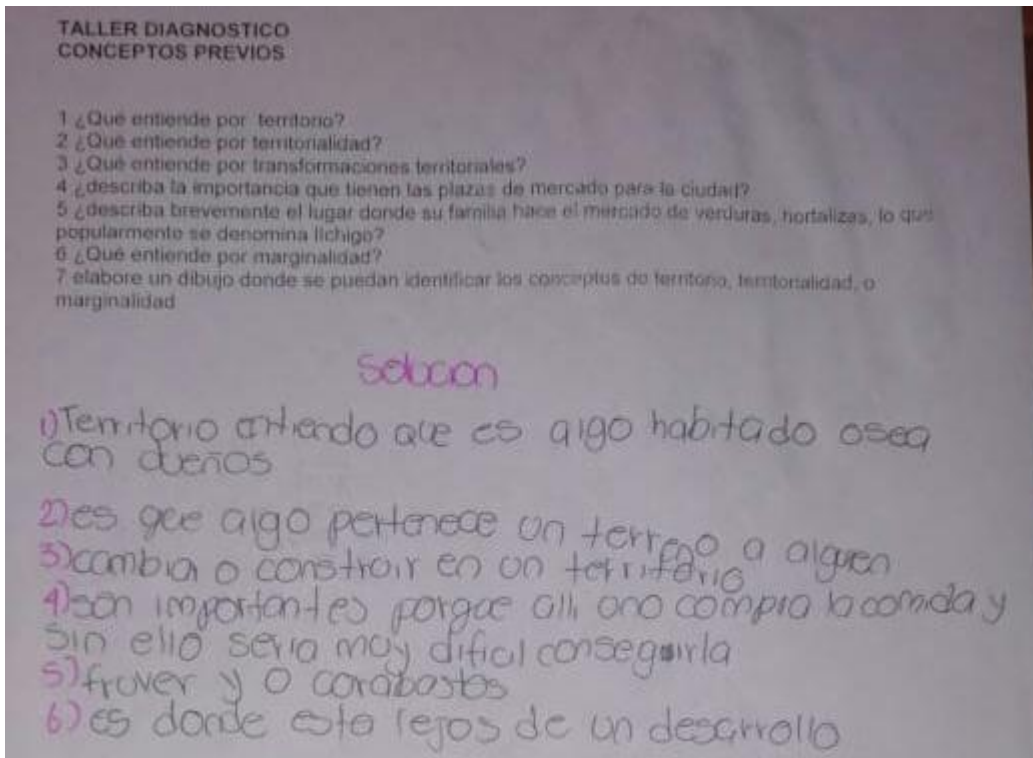 TALLER DIAGNOSTICO
CONCEPTOS PREVIOS
1 ¿Qué entiende por territorio?
2 ¿Qué entiende por territorialidad?
3 ¿Qué entiende por transformaciones territoriales?
4 ¿describa la importancia que tienen las plazas de mercado para la ciudad?
5 ¿describa brevemente el lugar donde su familia hace el mercado de verduras, hortalizas, lo que
popularmente se denomina lichigo?
6 ¿Qué entiende por marginalidad?
7 elabore un dibujo donde se puedan identificar los conceptos de territorio, territorialidad, o
marginalidad
Solucion
1) Territorio entiendo que es algo habitado osea
con dueños
2) es que algo pertenece un terreno a alguen
3) cambia o construir en un territorio
4) son importantes porque alli uno compra la comida y
sin ello seria muy dificil conseguirla
5) fruver y o corabastos
6) es donde esta lejos de un desarrollo